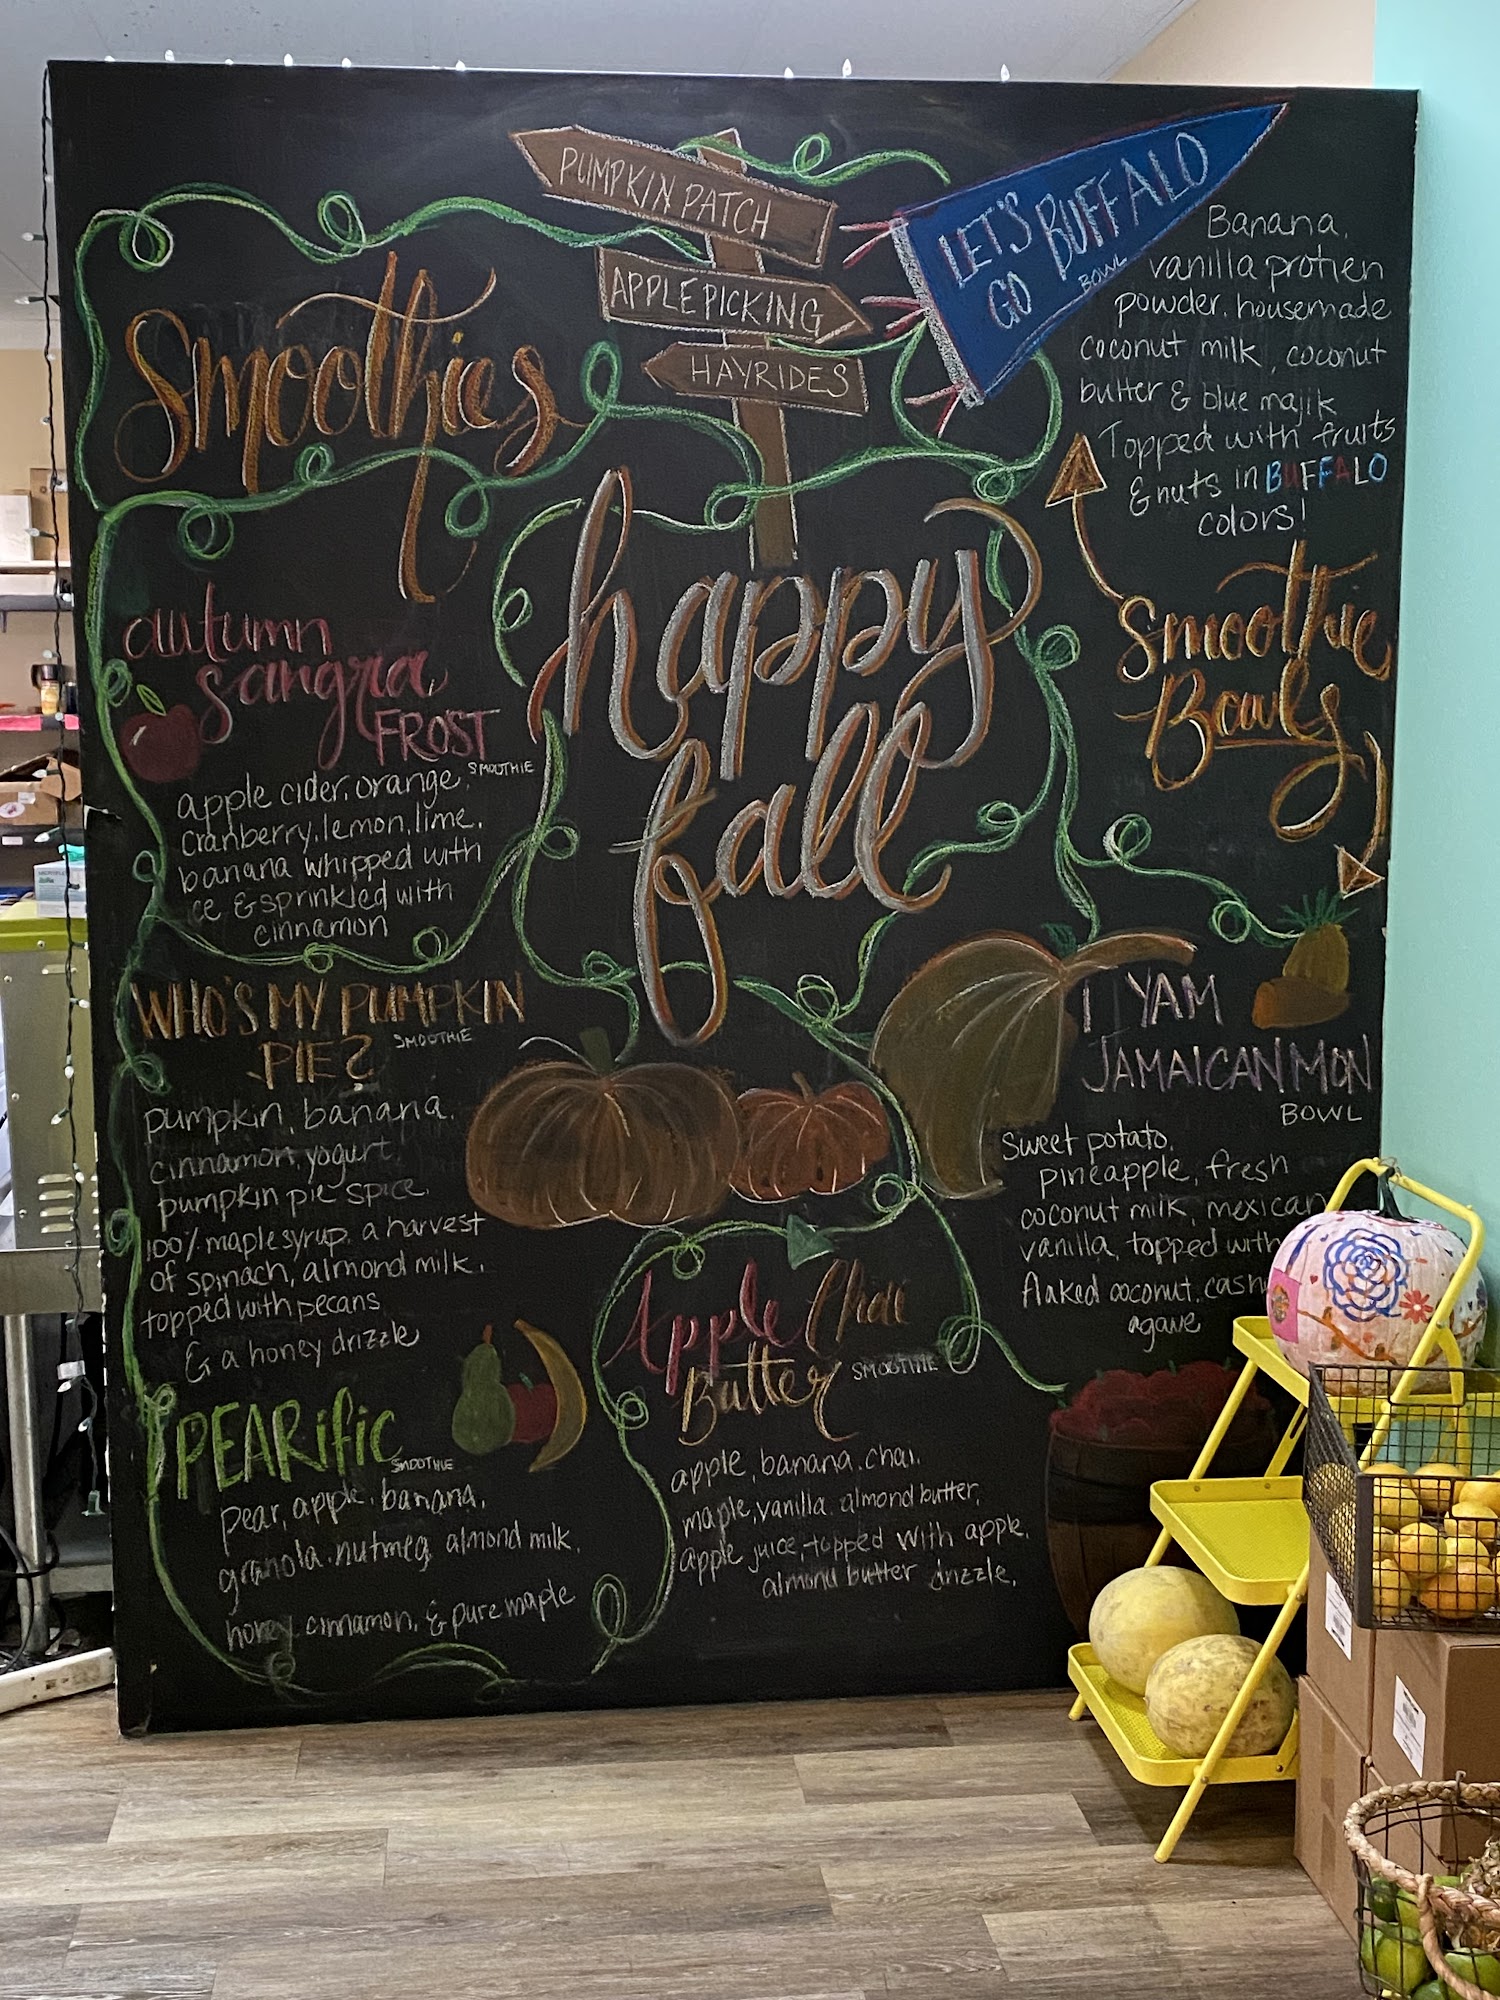 PUMPKIN PATCH
APPLE PICKING
HAYRIDES
Smoothies
autumn
sangria
FROST
SMOOTHIE
apple cider, orange,
cranberry, lemon, lime,
banana whipped with
ice & sprinkled with
cinnamon
WHO'S MY PUMPKIN
PIE?
SMOOTHIE
pumpkin, banana,
cinnamon, yogurt,
pumpkin pie spice,
100% maple syrup, a harvest
of spinach, almond milk,
topped with pecans
& a honey drizzle
PEARific
SMOOTHIE
pear, apple, banana,
granola, nutmeg, almond milk,
honey, cinnamon, & pure maple
happy
fall
Apple Chai
Butter
SMOOTHIE
apple, banana, chai,
maple, vanilla, almond butter,
apple juice, topped with apple,
almond butter drizzle.
LET'S
GO BUFFALO
BOWL
Banana,
vanilla protien
powder, housemade
coconut milk, coconut
butter & blue majik
Topped with fruits
& nuts in BUFFALO
colors!
Smoothie
Bowls
I YAM
JAMAICAN MON
BOWL
Sweet potato,
pineapple, fresh
coconut milk, mexican
vanilla, topped with
flaked coconut,
agave